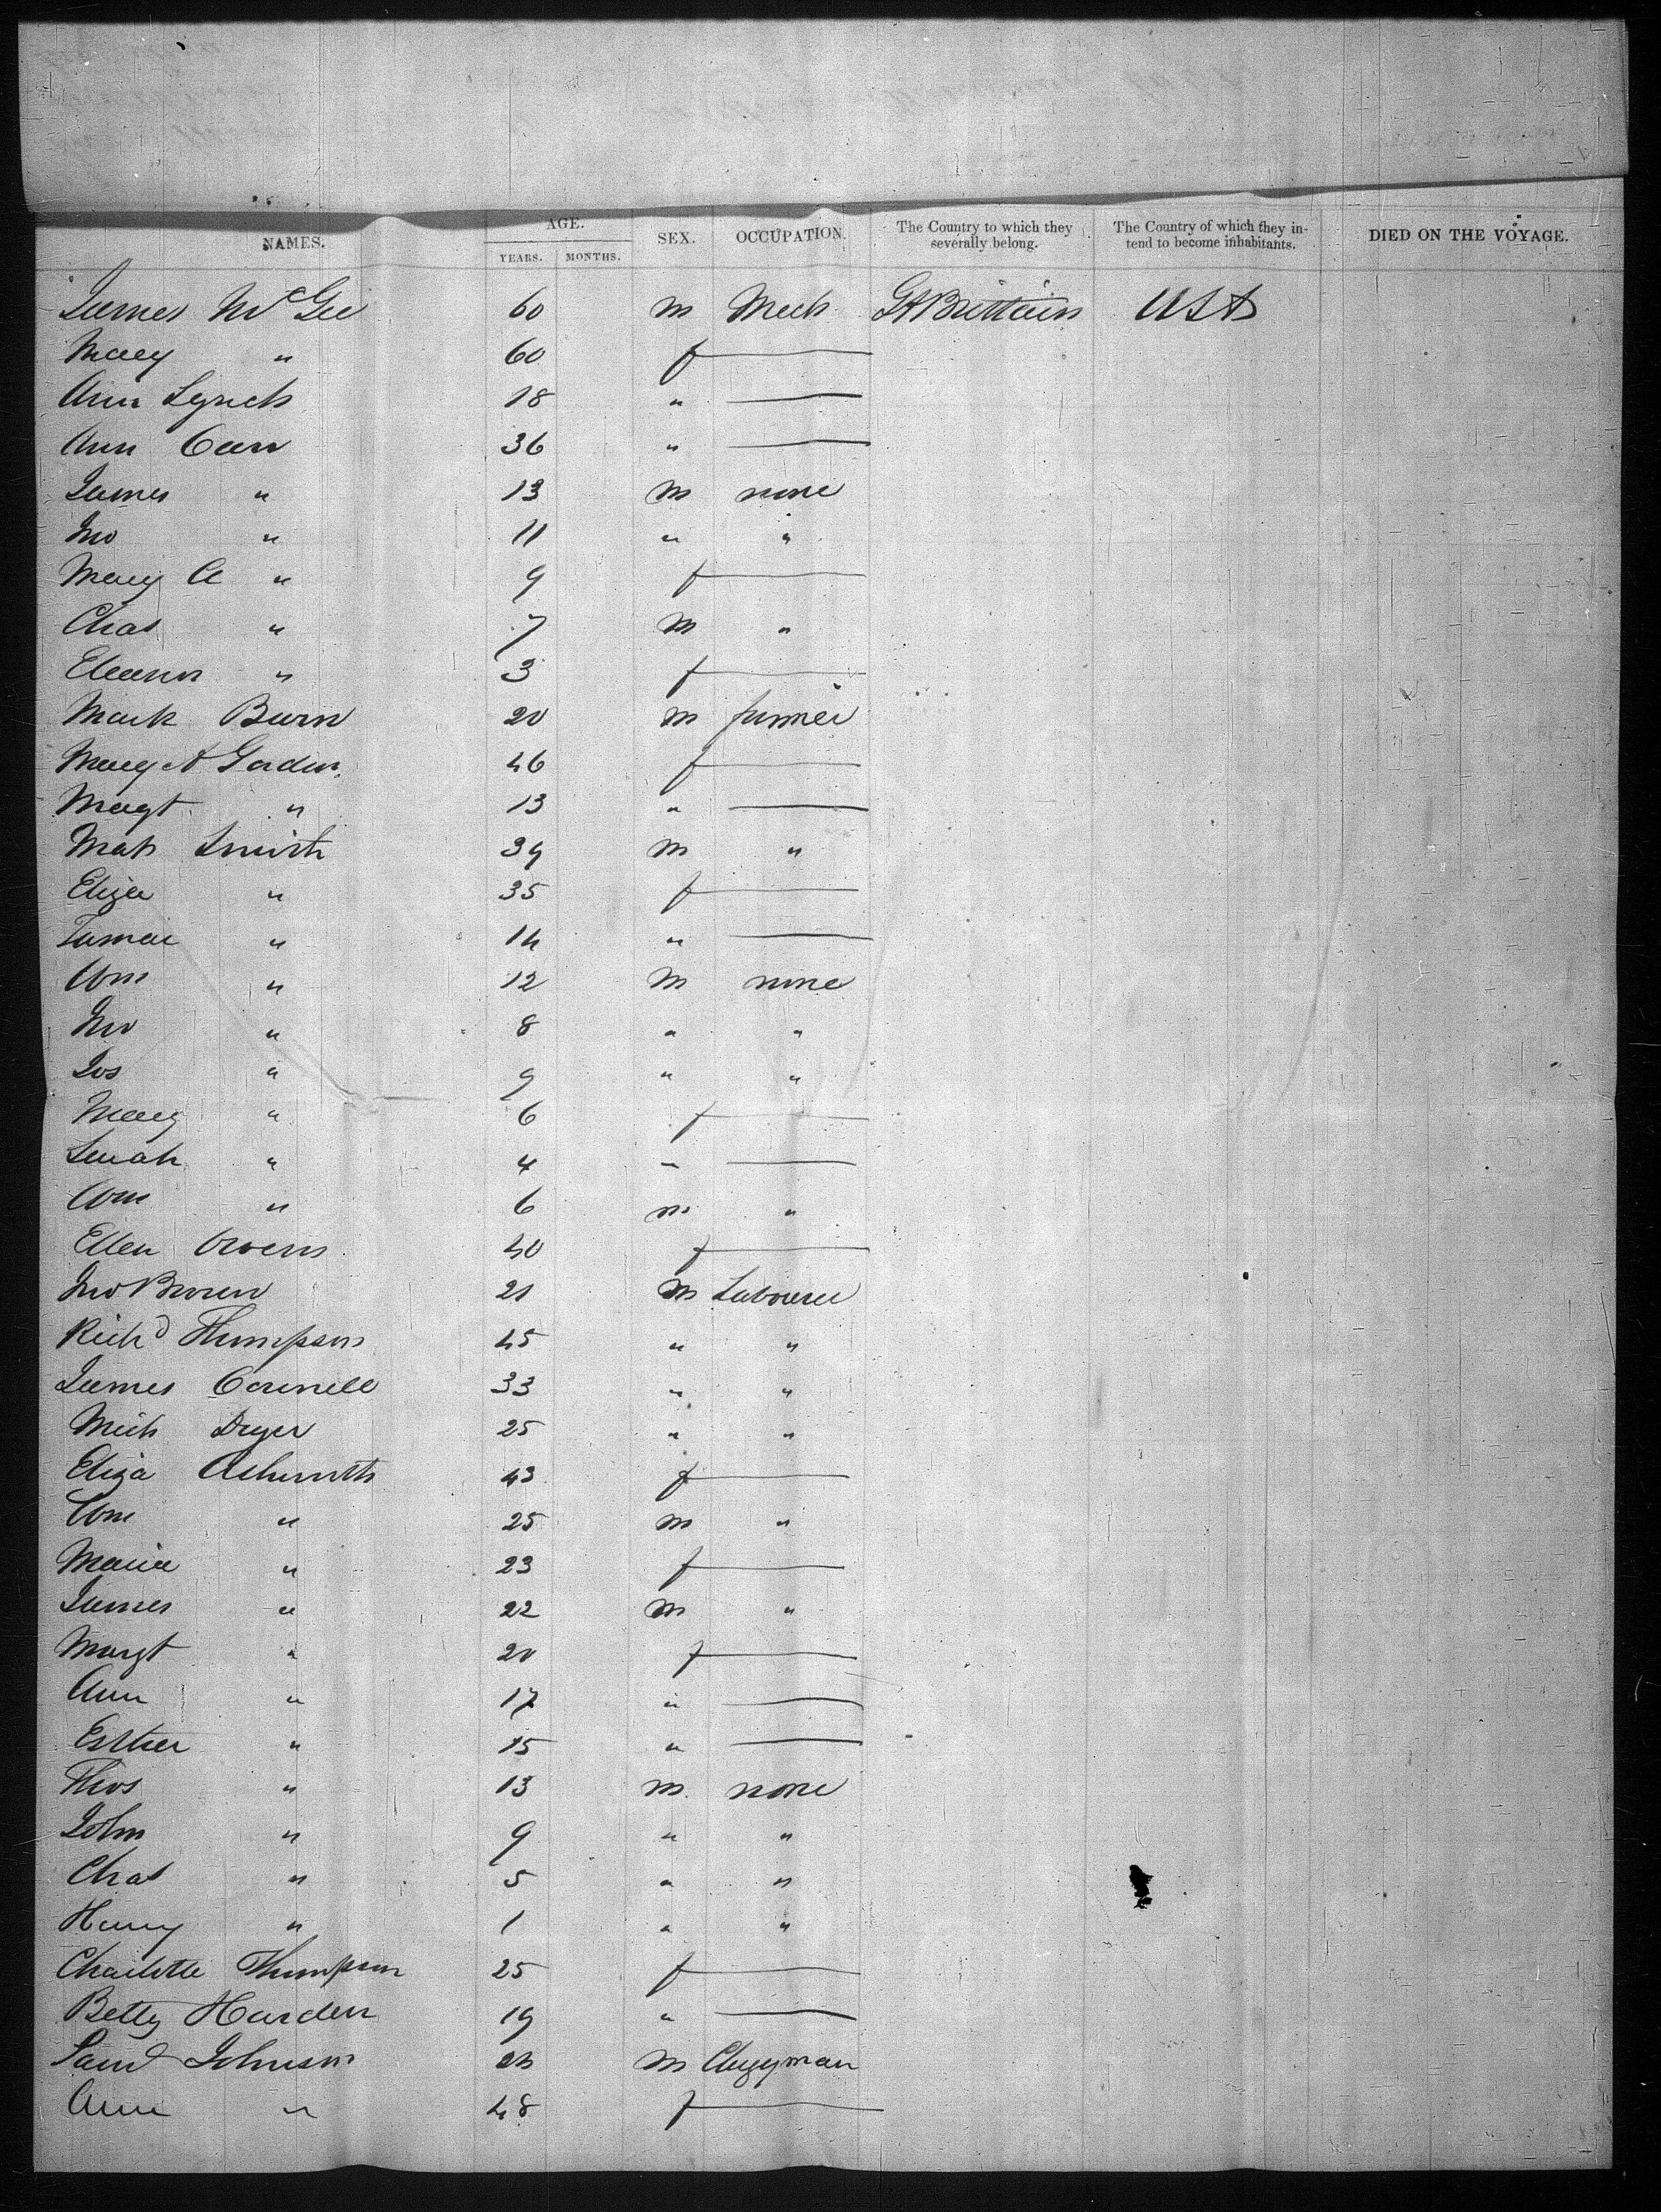 NAMES. AGE. SEX. OCCUPATION. The Country to which they severally belong. The Country of which they intend to become inhabitants. DIED ON THE VOYAGE.
YEARS. MONTHS.
James McGee 60 m Mech Gt Brittain USA
Mary " 60 f
Ann Lynch 18 "
Ann Carr 36 "
James " 13 m none
Jno " 11 " "
Mary A " 9 f
Chas " 7 m "
Eleanor " 3 f
Mark Burn 20 m farmer
Mary A Gorden 46 f
Magt " 13 "
Mat Smith 39 m "
Eliza " 35 f
Tamar " 14 "
Wm " 12 m none
Jno " 8 " "
Jos " 9 " "
Mary " 6 f
Sarah " 4 "
Wm " 6 m "
Ellen Owens 40 f
Jno Brown 21 m Labourer
Richd Thompson 45 " "
James Connell 33 " "
Mich Dryer 25 " "
Eliza Ashworth 43 f
Wm " 25 m "
Maria " 23 f
James " 22 m "
Margt " 20 f
Ann " 17 "
Esther " 15 "
Thos " 13 m none
John " 9 " "
Chas " 5 " "
Henry " 1 " "
Charlotte Thompson 25 f
Betty Harden 19 "
Saml Johnson m Clergyman
Ann " 48 f